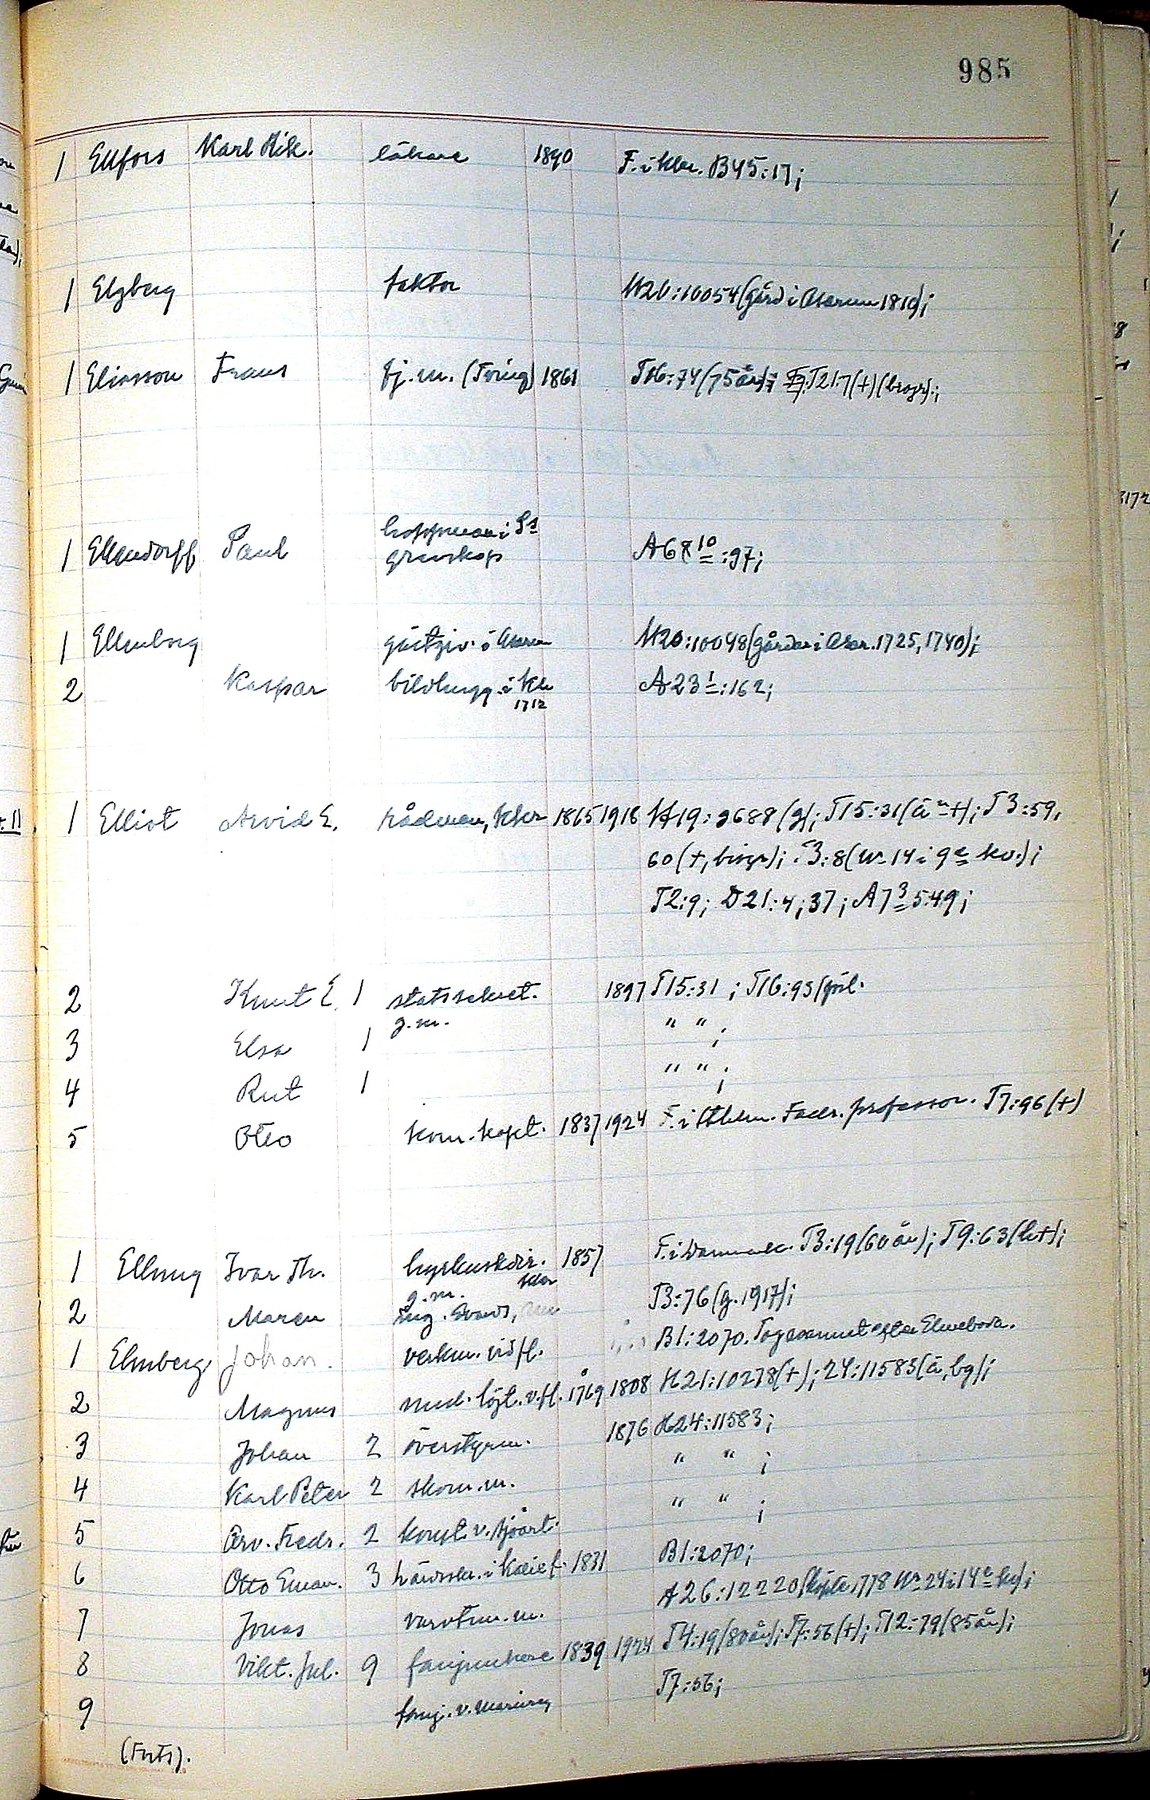 985
1 Ellfors Karl Rik. läkare 1890 F. i Khr. B45:17;
1 Elgberg faktor H20:10054 (gård i Asarum 1810);
1 Eliasson Frans fj. m. (Tving) 1861 T16:74 (75 år); T21:7 (+) (biogr);
1 Ellendorff Paul hoppman i grevskap A68 10:97;
1 Ellenborg gästgiv. i Asarum H20:10048 (gårdar i Asar. 1725, 1740);
2 Kaspar bildhugg. i Khr 1712 A23 1:162;
1 Elliot Arvid E. rådman, Khr 1865 1918 H19:9688 (g); T15:31 (ä +); T3:59,
60 (+, biogr); T3:8 (nr 14 i 9e kv.);
T2:9; D21:4; 37; A7 3:549;
2 Knut E. 1 statssekret. 1897 T15:31; T16:93 (förl.
3 Elsa 1 g. m. " " ;
4 Rut 1 " " ;
5 Otto kom. kapt. 1837 1924 F. i Sthlm. Fadr. professor. T7:96 (+)
1 Elleng Ivar Th. byråuskdir. 1857 F. i Danmark. T3:19 (60 år); T9:63 (h+);
2 Maren g. m. ing. Khr T3:76 (g. 1917);
1 Elmberg Johan verkm. vid fl. B1:2070. Tog namnet efter Elmeboda.
2 Magnus und. löjt. v. fl. 1769 1808 H21:10278 (+); 24:11583 (ä, bg);
3 Johan 2 överstyrm. 1876 H24:11583;
4 Karl Peter 2 skom. m. " " ;
5 Arv. Fredr. 2 konst. v. sjöart. " " ;
6 Otto Eman. 3 häradsskr. i 1831 B1:2070;
7 Jonas varvtim. m. A26:12220 (köpte 1778 nr 24 i 14e kv);
8 Vikt. Jul. 9 fanjunkare 1839 1924 T4:19 (80 år); T7:56 (+); T12:79 (85 år);
9 fanj. v. marinreg T7:56;
(Forts).